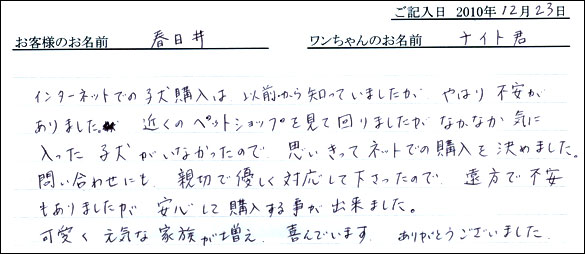 ご記入日 2010年12月23日
お客様のお名前 春日井 ワンちゃんのお名前 ナイト君
インターネットでの子犬購入は 以前から知っていましたが、やはり 不安が
ありました。 近くのペットショップを見て回りましたが なかなか 気に
入った 子犬 がいなかったので、思いきって ネットでの購入を 決めました。
問い合わせにも、親切で優しく対応して下さったので、遠方で不安
もありましたが 安心して購入する事が出来ました。
可愛く 元気な 家族が増え、喜んでいます。ありがとうございました